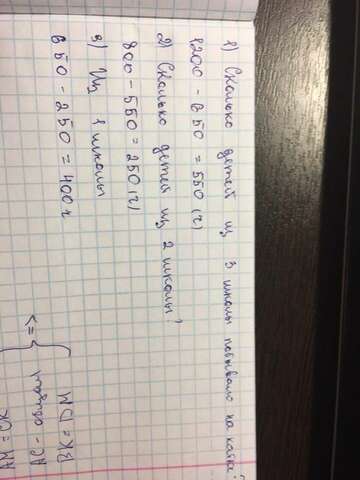 1) Сколько детей из 3 школы побывало на катке?
1200 - 650 = 550 (ч)
2) Сколько детей из 2 школы?
800 - 550 = 250 (ч)
3) Из 1 школы
650 - 250 = 400 ч
AC - общая
<=
AM = CK